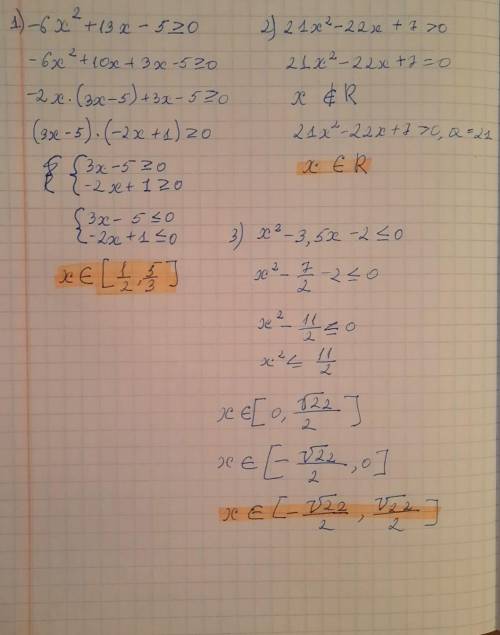 1) -6x² + 13x - 5 ≥ 0
-6x² + 10x + 3x - 5 ≥ 0
-2x · (3x - 5) + 3x - 5 ≥ 0
(3x - 5) · (-2x + 1) ≥ 0
{ 3x - 5 ≥ 0
{ -2x + 1 ≥ 0
{ 3x - 5 ≤ 0
{ -2x + 1 ≤ 0
x ∈ [1/2, 5/3]
2) 21x² - 22x + 7 > 0
21x² - 22x + 7 = 0
x ∉ R
21x² - 22x + 7 > 0, a = 21
x ∈ R
3) x² - 3,5x - 2 ≤ 0
x² - 7/2 - 2 ≤ 0
x² - 11/2 ≤ 0
x² ≤ 11/2
x ∈ [0, √22/2]
x ∈ [-√22/2, 0]
x ∈ [-√22/2, √22/2]